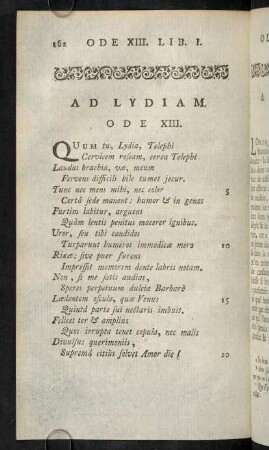 162 ODE XIII. LIB. I.
AD LYDIAM.
ODE XIII.
QUUM tu, Lydia, Telephi
Cervicem roseam, cerea Telephi
Laudas brachia, væ, meum
Fervens difficili bile tumet jecur.
Tunc nec mens mihi, nec color 5
Certâ sede manent: humor & in genas
Furtim labitur, arguens
Quàm lentis penitus macerer ignibus.
Uror, seu tibi candidos
Turparunt humeros immodicæ mero 10
Rixæ; sive puer furens
Impressit memorem dente labris notam.
Non, si me satis audias,
Speres perpetuum dulcia Barbarè
Lædentem oscula, quæ Venus 15
Quintâ parte sui nectaris imbuit.
Felices ter & amplius
Quos irrupta tenet copula, nec malis
Divulsus querimoniis,
Supremâ citiùs solvet Amor die! 20